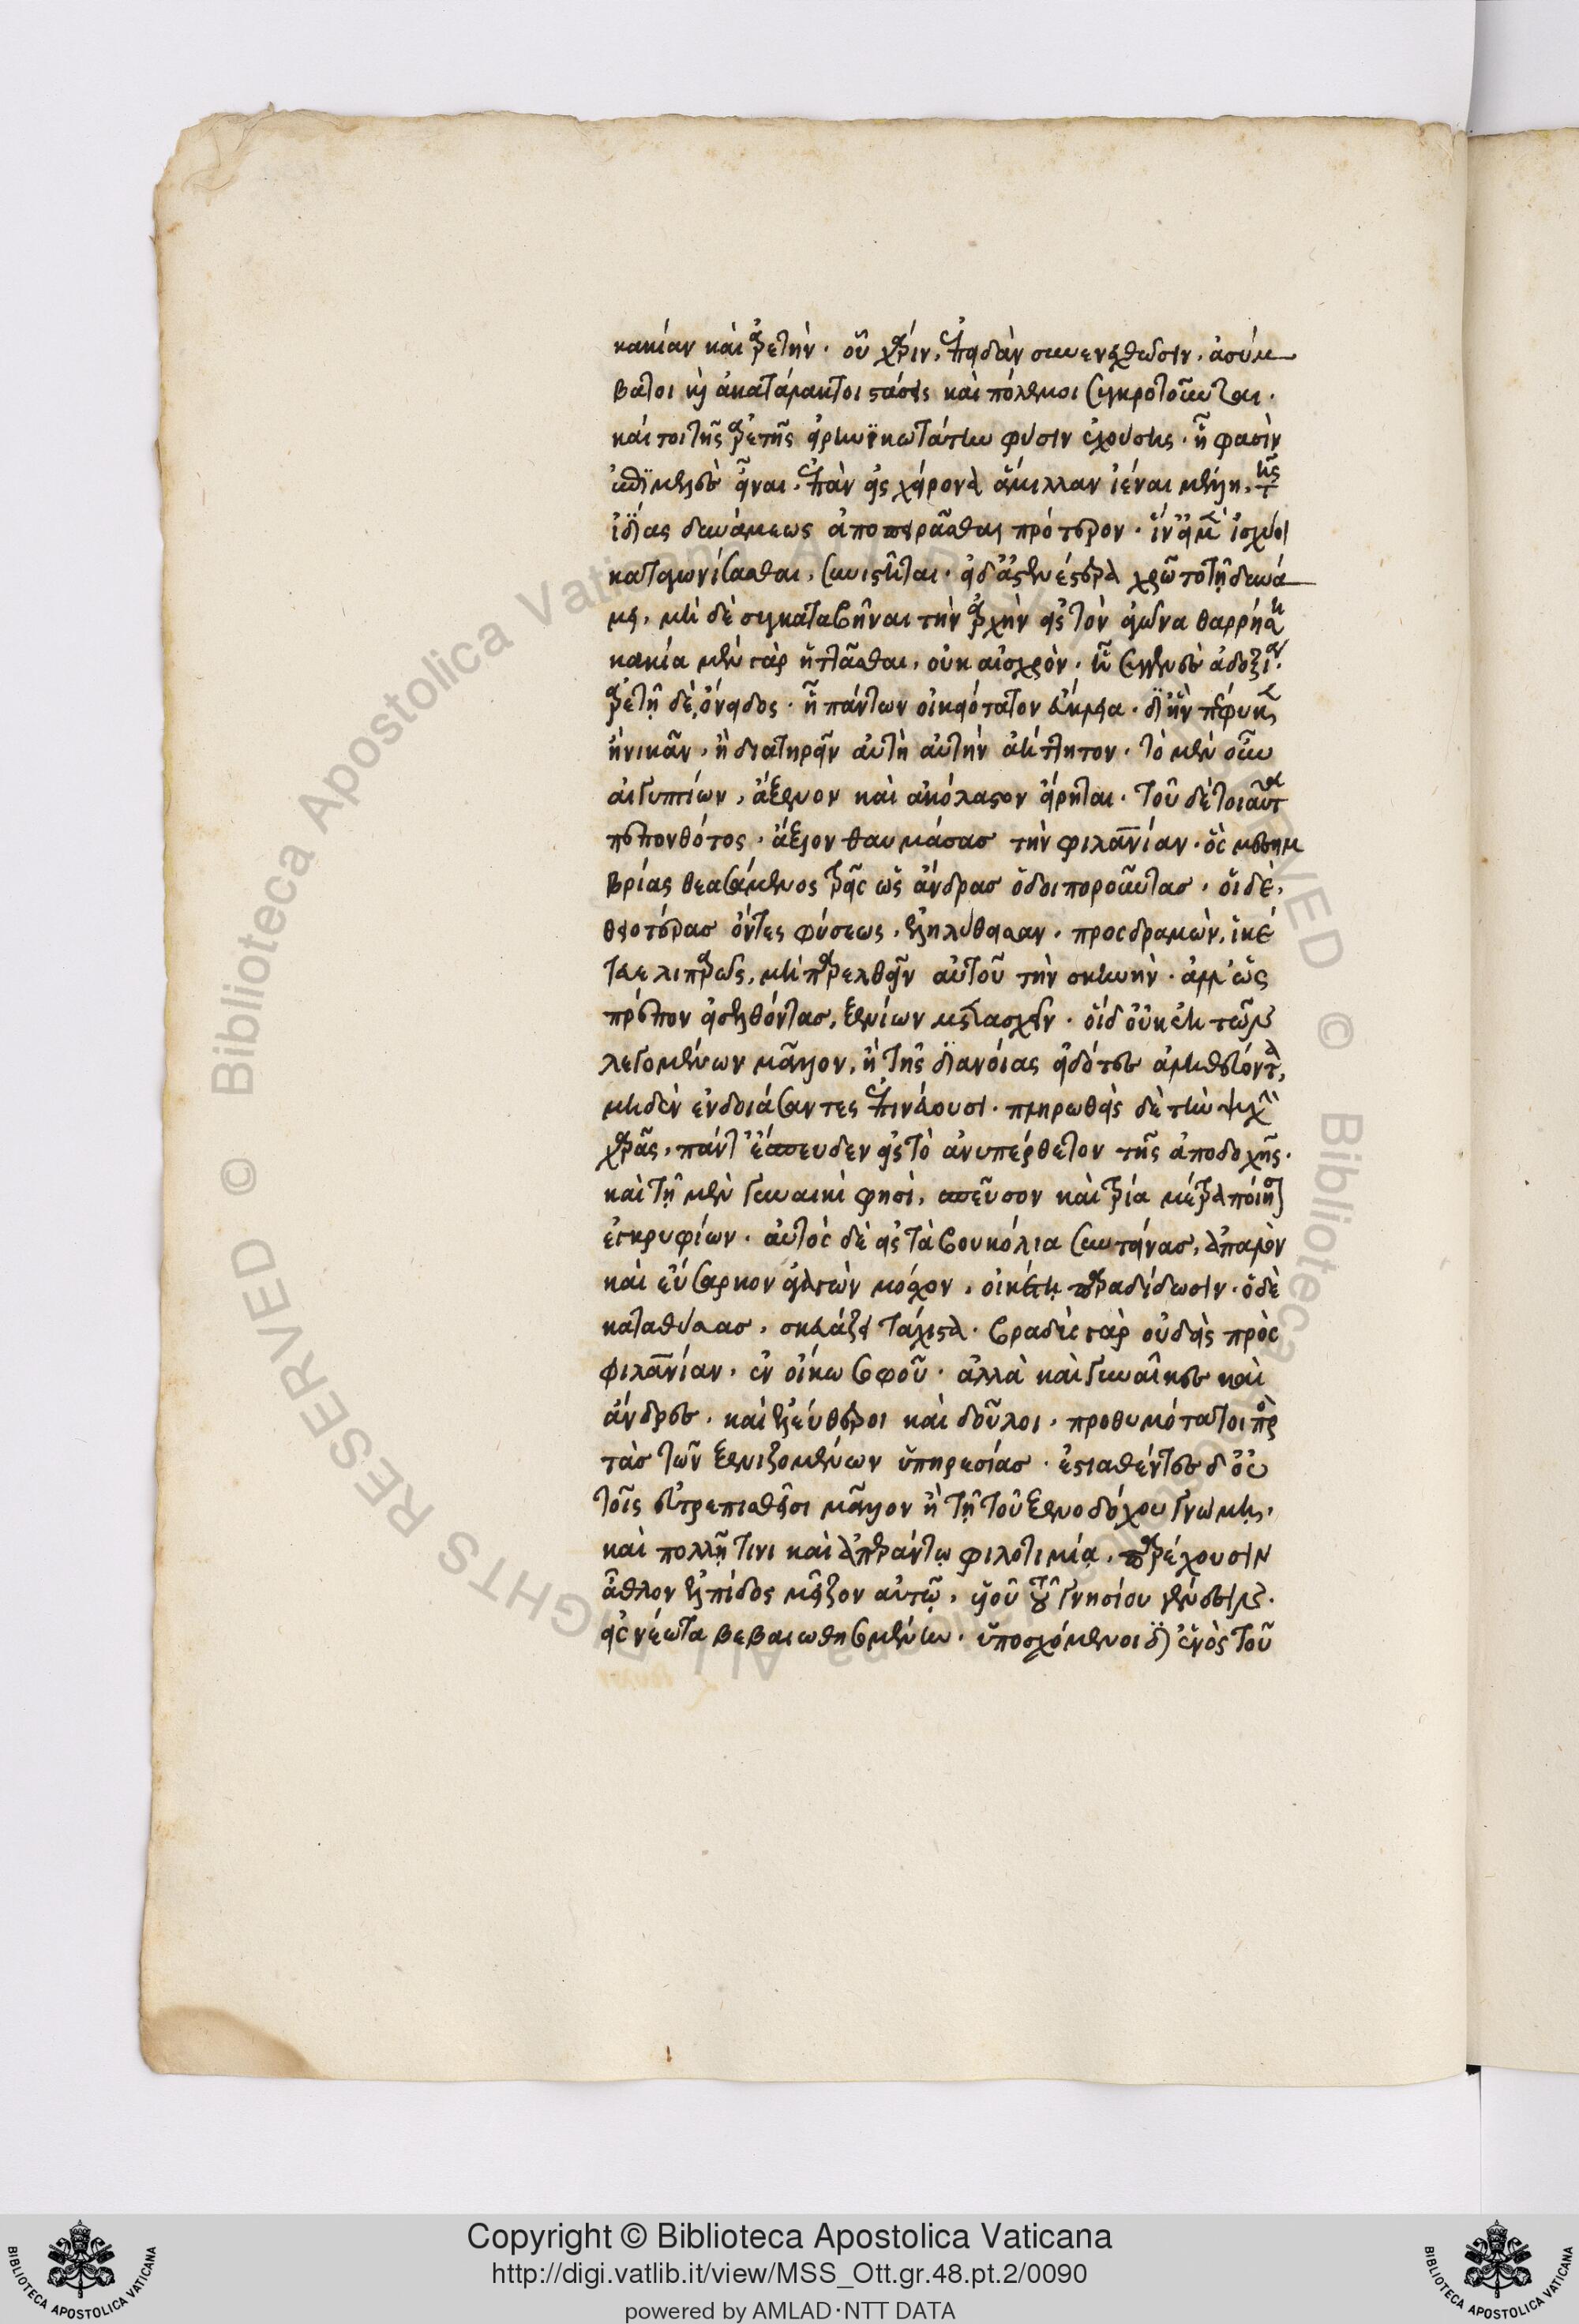 κακίαν καὶ ἀρετήν. οὗ χάριν, ἐπειδὰν συνενεχθῶσιν, ἀσύμ
βατοι καὶ ἀκατάλλακτοι στάσεις καὶ πόλεμοι συγκροτοῦνται.
καίτοι τῆς ἀρετῆς εἰρηνικωτάτην φύσιν ἐχούσης. ᾗ φασὶν
ἐπιμελὲς εἶναι, ἐπὰν εἰς χειρῶν ἅμιλλαν ἰέναι μέλλῃ, τῆς
ἰδίας δυνάμεως ἀποπειρᾶσθαι πρότερον. ἵν' εἰ μὲν ἰσχύοι
καταγωνίσασθαι, συνίστηται. εἰ δ' ἀσθενεστέρα χρῷτο τῇ δυνά
μει, μὴ δὲ συγκαταβῆναι τὴν ἀρχὴν εἰς τὸν ἀγῶνα θαρρήσῃ.
κακία μὲν γὰρ ἡττᾶσθαι, οὐκ αἰσχρὸν. ᾗ συγγενὲς ἀδοξία.
ἀρετῇ δὲ, ὄνειδος. ᾗ πάντων οἰκειότατον εὔκλεια. δι' ἣν πέφυκεν
ἢ νικᾶν, ἢ διατηρεῖν αὐτὴ αὑτὴν ἀήττητον. τὸ μὲν οὖν
αἰγυπτίων, ἄξενον καὶ ἀκόλαστον εἴρηται. τοῦ δὲ τοιαῦτα
πεπονθότος, ἄξιον θαυμάσαι τὴν φιλανίαν. ὃς μεσημ
βρίας θεασάμενος τρεῖς ὡς ἄνδρας ὁδοιποροῦντας. οἱ δὲ,
θειοτέρας ὄντες φύσεως, ἐλελήθεσαν. προσδραμὼν, ἱκέ
τευε λιπαρῶς, μὴ παρελθεῖν αὐτοῦ τὴν σκηνὴν. ἀλλ' ὡς
πρέπον εἰσελθόντας, ξενίων μετασχεῖν. οἱ δ' οὐκ ἐκ τῶν
λεγομένων μᾶλλον, ἢ τῆς διανοίας εἰδότες ἀληθεύοντα,
μηδὲν ἐνδοιάσαντες ἐπινεύουσι. πληρωθεὶς δὲ τὴν ψυχὴν
χαρᾶς, πάντ' ἔσπευδεν εἰς τὸ ἀνυπέρθετον τῆς ἀποδοχῆς.
καὶ τῇ μὲν γυναικὶ φησὶ, σπεῦσον καὶ τρία μέτρα ποίησον
ἐγκρυφίων. αὐτὸς δὲ εἰς τὰ βουκόλια συντείνας, ἁπαλὸν
καὶ εὔσαρκον ἀγαγὼν μόσχον, οἰκέτῃ παραδίδωσιν. ὁ δὲ
καταθύσας, σκευάζει τάχιστα. βραδὺς γὰρ οὐδεὶς πρὸς
φιλανίαν, ἐν οἴκω σοφοῦ. ἀλλὰ καὶ γυναῖκες καὶ
ἄνδρες, καὶ ἐλεύθεροι καὶ δοῦλοι, προθυμότατοι πρὸς
τὰς τῶν ξενιζομένων ὑπηρεσίας. ἑστιαθέντες δ' οὐ
τοῖς εὐτρεπισθεῖσι μᾶλλον ἢ τῇ τοῦ ξενοδόχου γνώμῃ,
καὶ πολλῇ τινι καὶ ἀπεράντῳ φιλοτιμίᾳ, παρέχουσιν
ἆθλον ἐλπίδος μεῖζον αὐτῷ, υἱοῦ τοῦ γνησίου γένεσιν.
εἰς νέωτα βεβαιωθησομένην. ὑποσχόμενοι δι' ἑνὸς τοῦ
Copyright © Biblioteca Apostolica Vaticana
http://digi.vatlib.it/view/MSS_Ott.gr.48.pt.2/0090
powered by AMLAD·NTT DATA